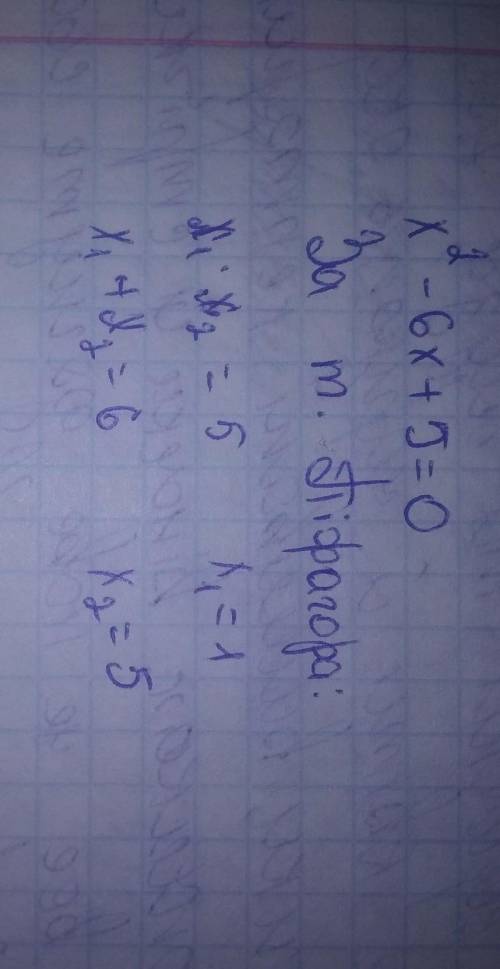 x² - 6x + 5 = 0
За т. Піфагора:
x₁ · x₂ = 5 x₁ = 1
x₁ + x₂ = 6 x₂ = 5